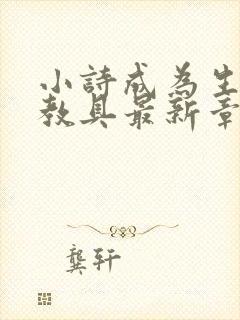 小詩成為生
教具最新章
龔軒